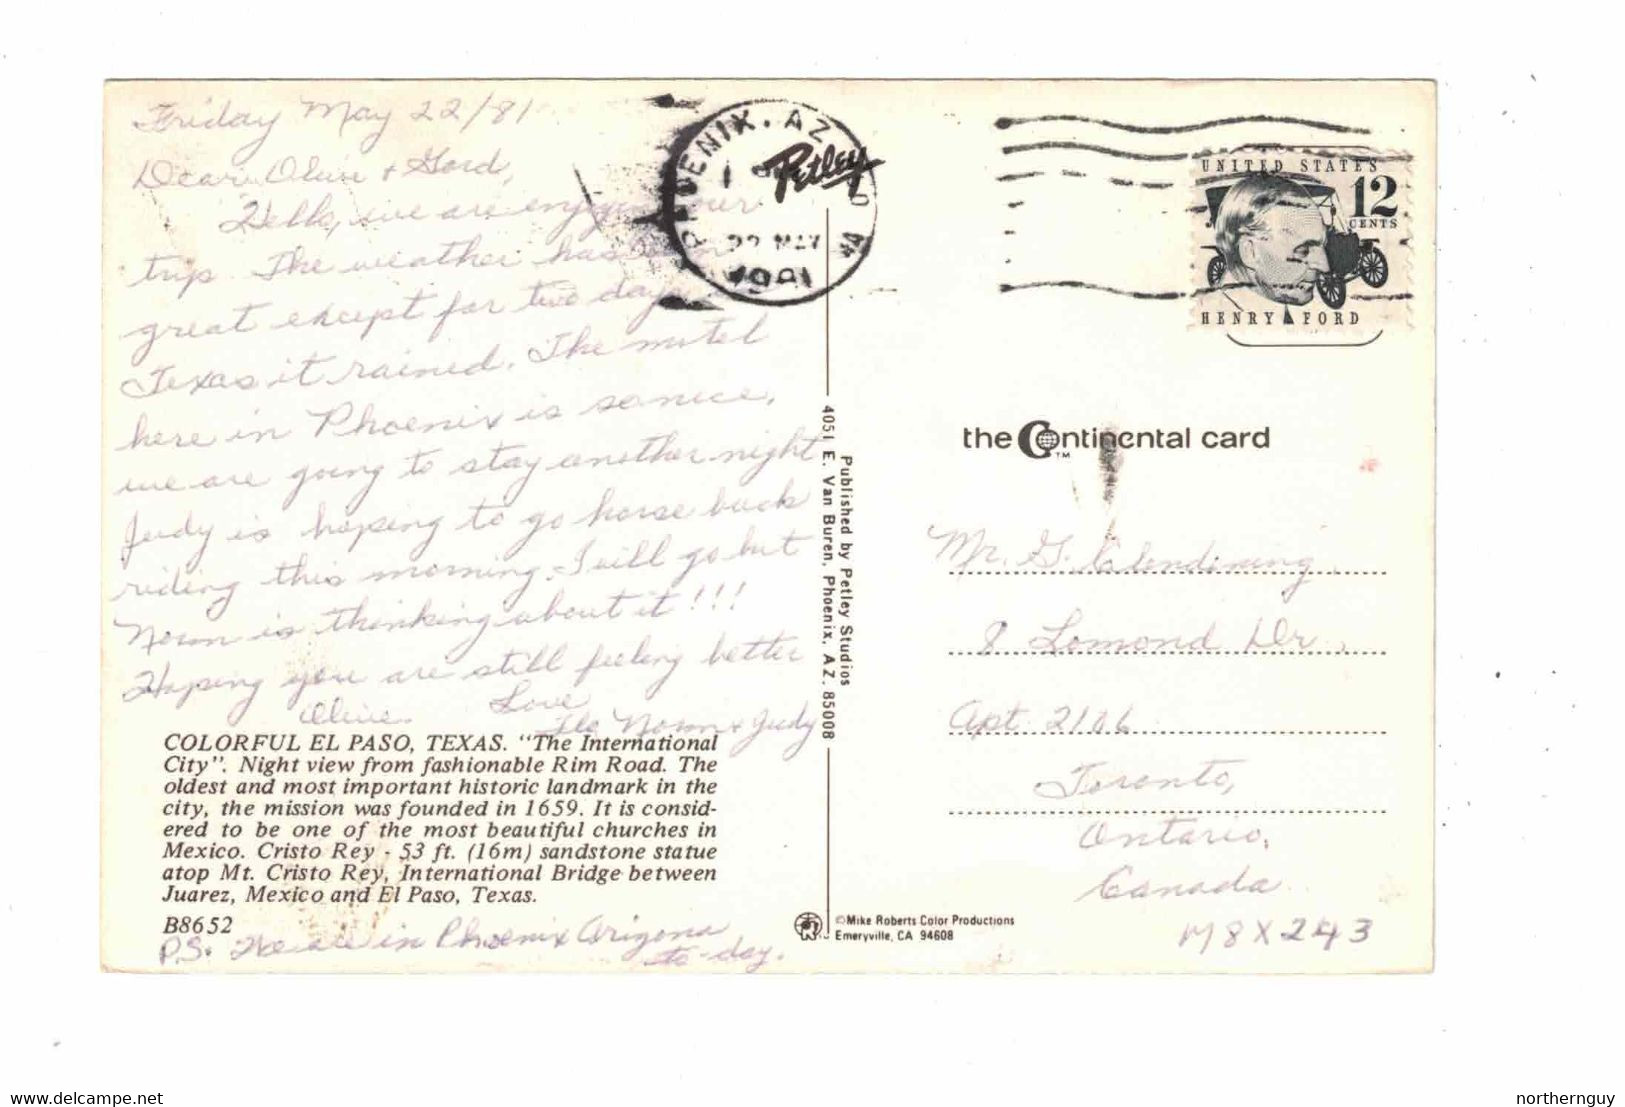 Friday May 22/81
Dear Olive + Gord,
Hello, we are enjoying our
trip. The weather has been
great except for two days
Texas it rained. The motel
here in Phoenix is so nice,
we are going to stay another night
Judy is hoping to go horse back
riding this morning. I will go but
Norm is thinking about it!!!
Hoping you are still feeling better
Olive. Love
Norm + Judy
COLORFUL EL PASO, TEXAS. "The International
City". Night view from fashionable Rim Road. The
oldest and most important historic landmark in the
city, the mission was founded in 1659. It is consid-
ered to be one of the most beautiful churches in
Mexico. Cristo Rey - 53 ft. (16m) sandstone statue
atop Mt. Cristo Rey, International Bridge between
Juarez, Mexico and El Paso, Texas.
B8652
P.S. We are in Phoenix Arizona
to-day.
PHOENIX, AZ
22 MAY
1981
Petley
4051 E. Van Buren, Phoenix, AZ. 85008
Published by Petley Studios
©Mike Roberts Color Productions
Emeryville, CA 94608
UNITED STATES
12
CENTS
HENRY FORD
the Continental card
TM
Mr. G. Clendining,
8 Lomond Dr.,
Apt. 2106
Toronto,
Ontario,
Canada
M8X 2A3
www.delcampe.net
northernguy